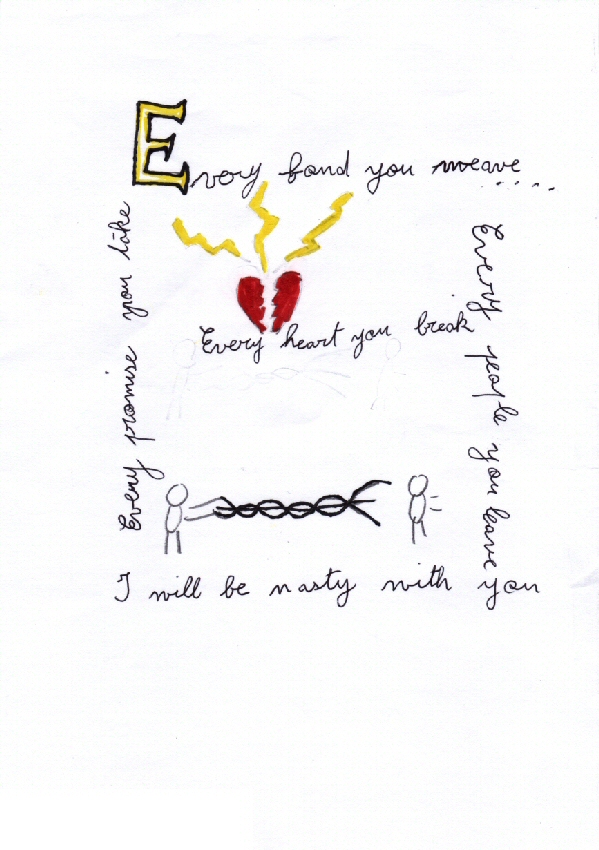 Every bond you weave.....
Every promise you take
Every heart you break
Every people you leave
I will be nasty with you